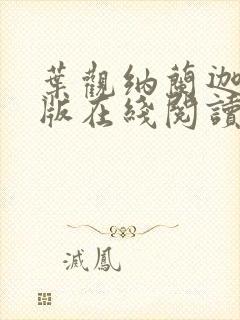 葉觀納蘭迦
版在綫閱讀
滅鳳